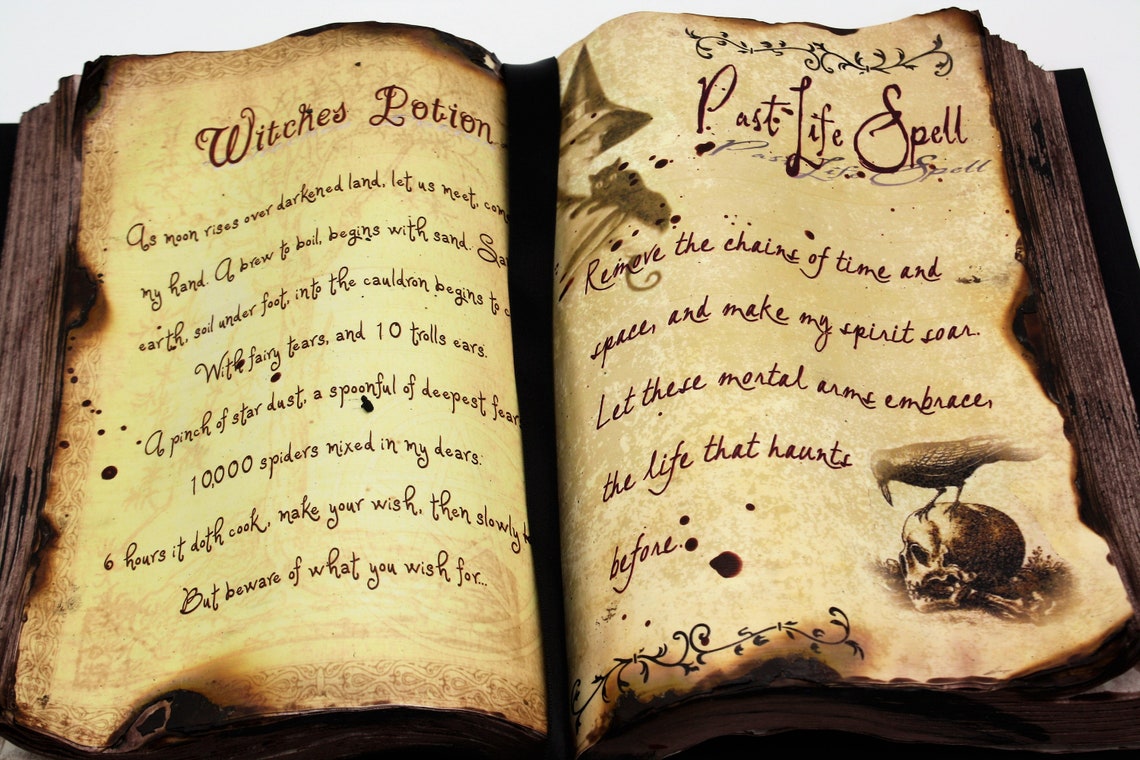 Witches Potion
As moon rises over darkened land, let us meet,
my hand. A brew to boil, begins with sand.
earth, soil under foot, into the cauldron begins to
With fairy tears, and 10 trolls ears.
A pinch of star dust, a spoonful of deepest fear
10,000 spiders mixed in my dears.
6 hours it doth cook, make your wish, then slowly
But beware of what you wish for...
Past Life Spell
Past Life Spell
Remove the chains of time and
space, and make my spirit soar.
Let these mortal arms embrace,
the life that haunts
before.